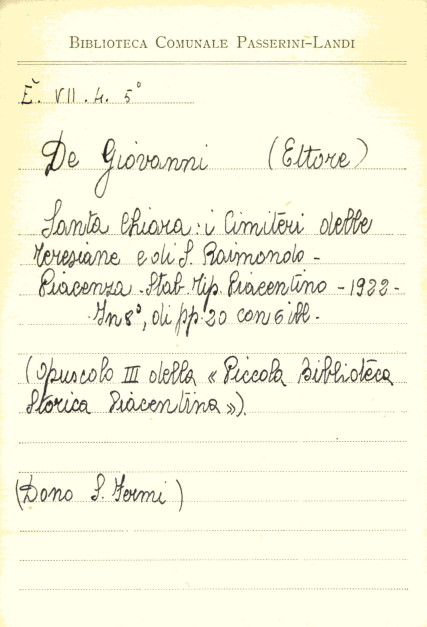 BIBLIOTECA COMUNALE PASSERINI-LANDI
È. VII. 4. 5°
De Giovanni (Ettore)
Santa Chiara: i Cimiteri delle
Teresiane e di S. Raimondo -
Piacenza - Stab. Tip. Piacentino - 1922 -
In 8°, di pp. 20 con 6 ill.
(Opuscolo III della « Piccola Biblioteca
Storica Piacentina »).
(Dono S. Fermi)